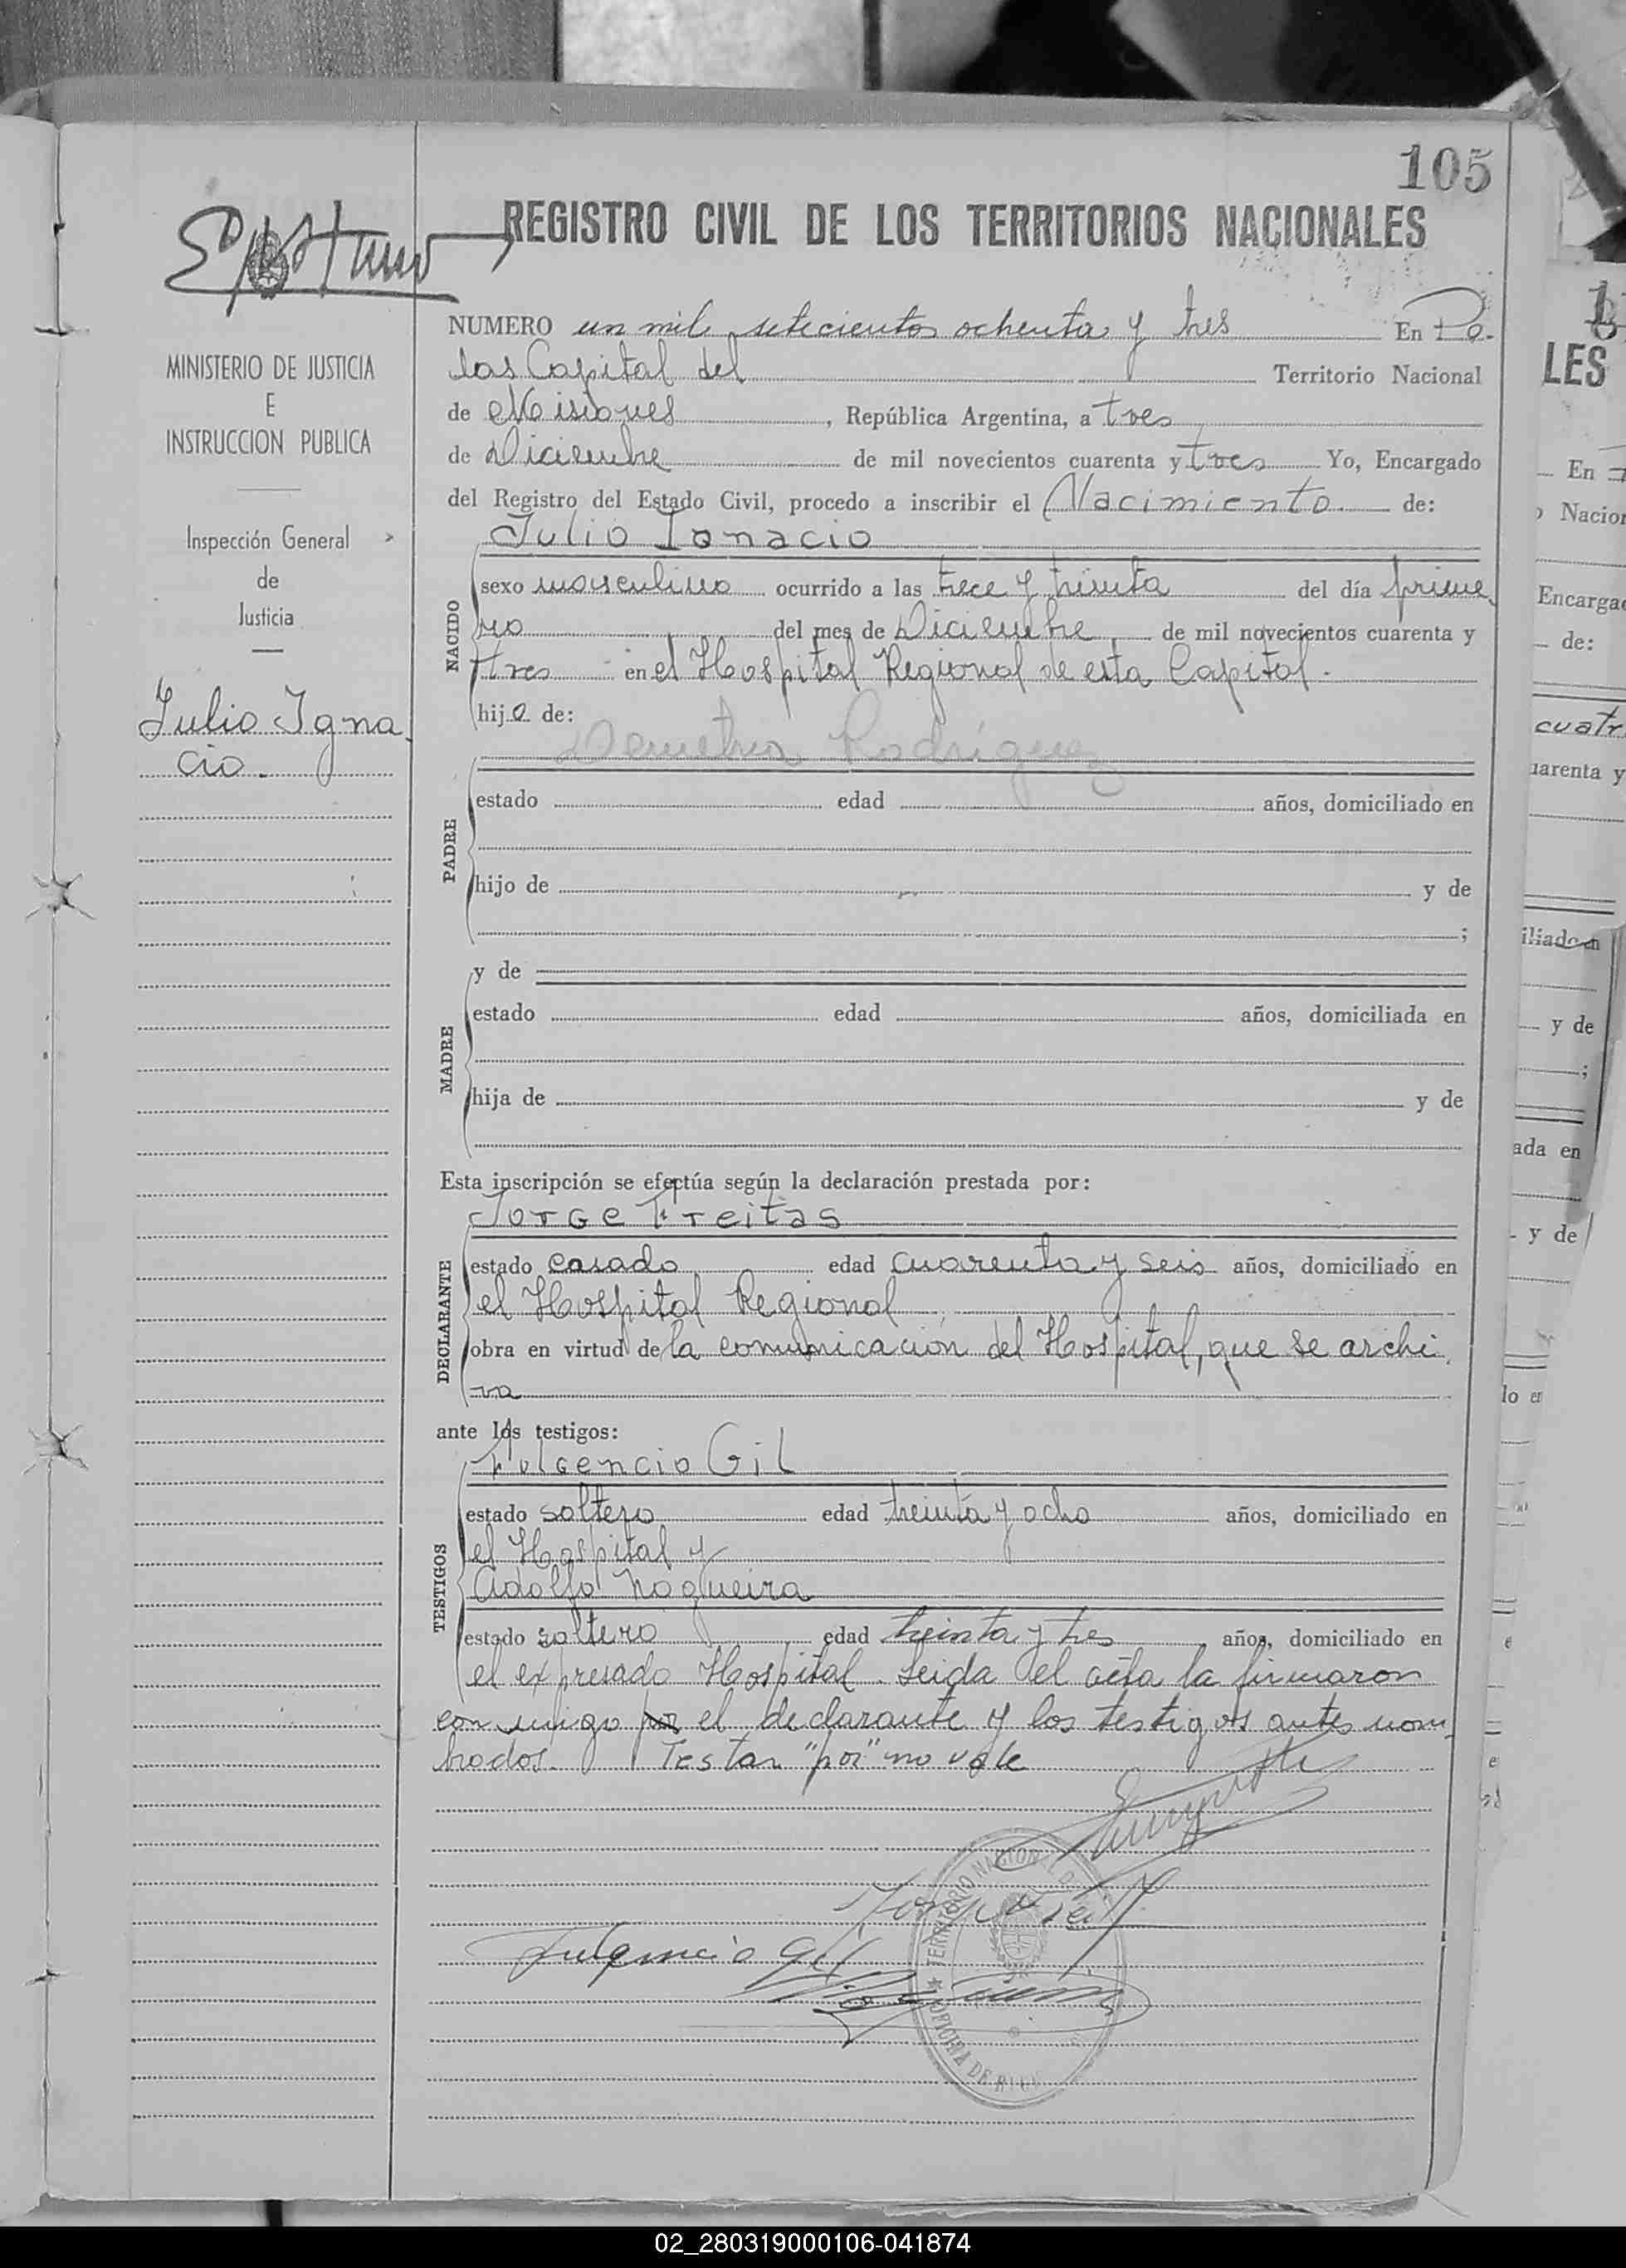 105
REGISTRO CIVIL DE LOS TERRITORIOS NACIONALES
MINISTERIO DE JUSTICIA
E
INSTRUCCION PUBLICA
Inspección General
de
Justicia
Julio Igna
cio.
NUMERO un mil setecientos ochenta y tres En Po-
sas Capital del Territorio Nacional
de Misiones, República Argentina, a tres
de Diciembre de mil novecientos cuarenta y tres Yo, Encargado
del Registro del Estado Civil, procedo a inscribir el Nacimiento de:
Julio Ignacio
NACIDO
sexo masculino ocurrido a las trece y treinta del día prime
ro del mes de Diciembre de mil novecientos cuarenta y
tres en el Hospital Regional de esta Capital.
hijo de:
Demetria Rodríguez
PADRE
estado edad años, domiciliado en
hijo de y de
;
y de
MADRE
estado edad años, domiciliada en
hija de y de
Esta inscripción se efectúa según la declaración prestada por:
Jorge Freitas
DECLARANTE
estado casado edad cuarenta y seis años, domiciliado en
el Hospital Regional
obra en virtud de la comunicación del Hospital, que se archi
va
ante los testigos:
Fulgencio Gil
TESTIGOS
estado soltero edad treinta y ocho años, domiciliado en
el Hospital y
Adolfo Nogueira
estado soltero edad treinta y tres años, domiciliado en
el expresado Hospital. Leida el acta la firmaron
conmigo por el declarante y los testigos antes nom
brados. Testar "por" no vale
Fulgencio Gil
TERRITORIO NACIONAL
OFICINA DE
LES
En
Nacion
Encargad
de:
cuatr
uarenta y
iliado en
y de
;
ada en
y de
02_280319000106-041874